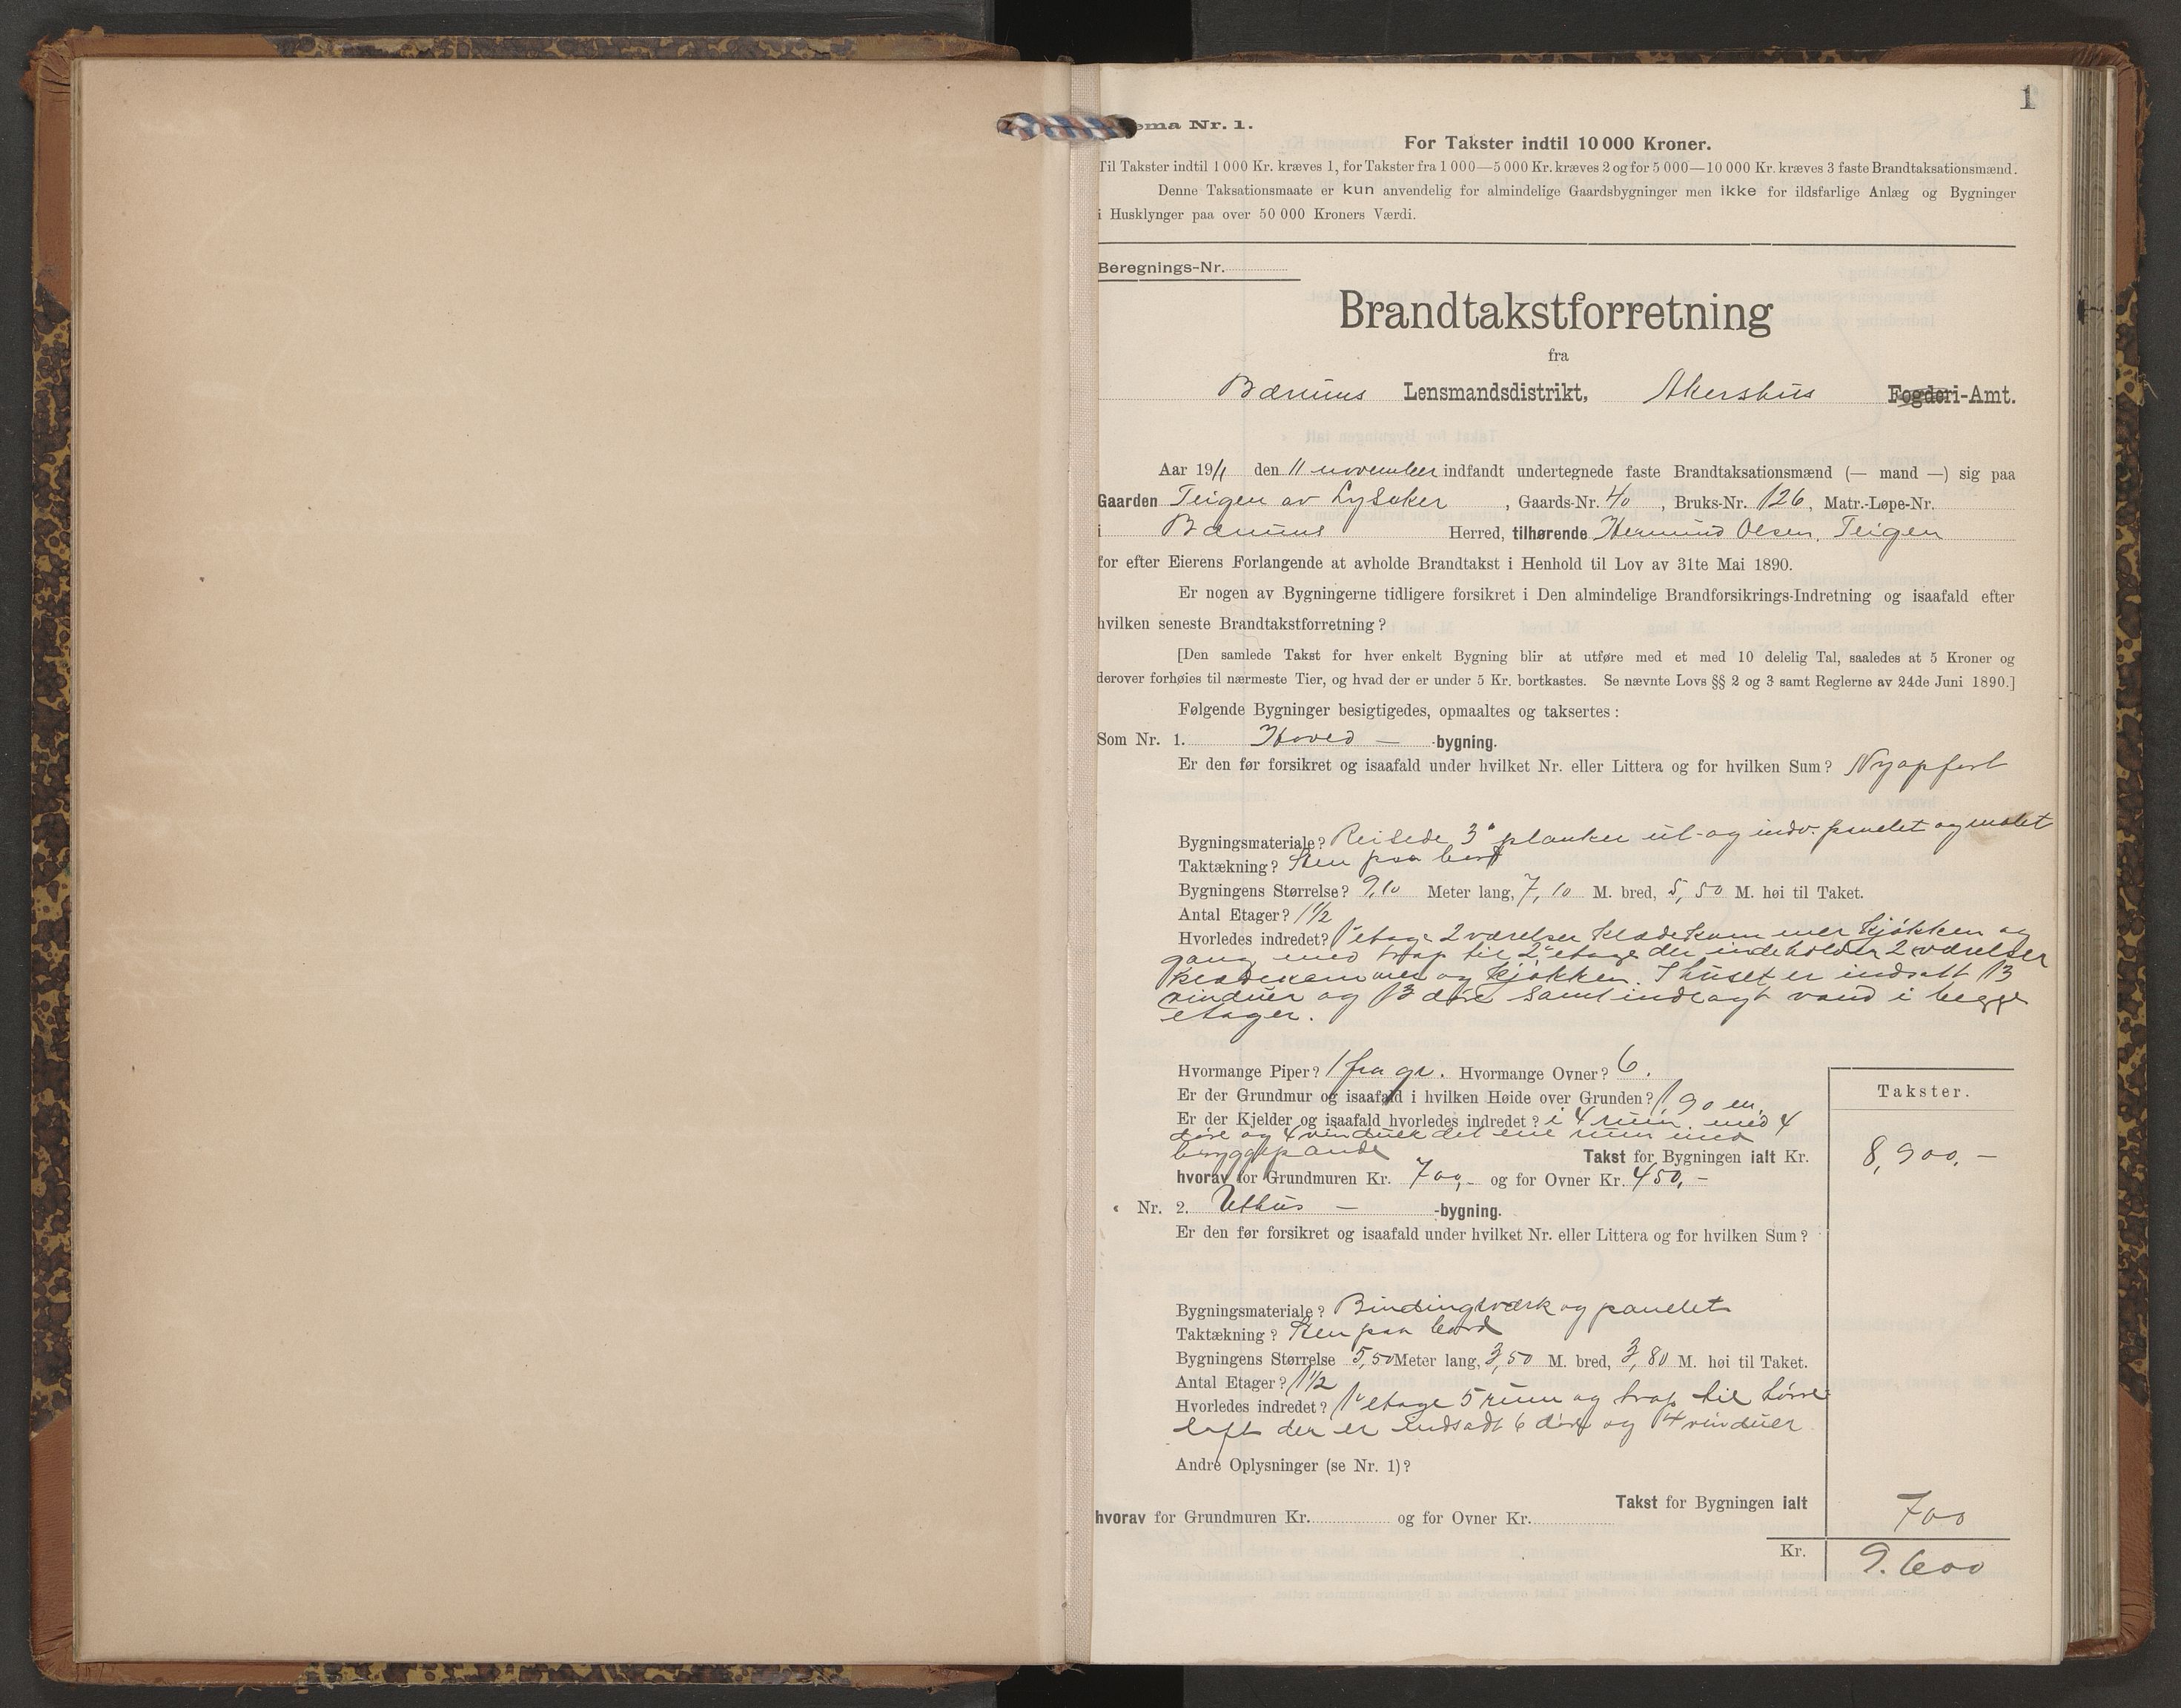 1
ema Nr. 1.
For Takster indtil 10 000 Kroner.
Til Takster indtil 1 000 Kr. kræves 1, for Takster fra 1 000—5 000 Kr. kræves 2 og for 5 000—10 000 Kr. kræves 3 faste Brandtaksationsmænd.
Denne Taksationsmaate er kun anvendelig for almindelige Gaardsbygninger men ikke for ildsfarlige Anlæg og Bygninger
i Husklynger paa over 50 000 Kroners Værdi.
Beregnings-Nr.
Brandtakstforretning
fra
Bærums Lensmandsdistrikt, Akershus Fogderi-Amt.
Aar 1911 den 11 november indfandt undertegnede faste Brandtaksationsmænd (— mand —) sig paa
Gaarden Teigen av Lysaker, Gaards-Nr. 40, Bruks-Nr. 126, Matr.-Løpe-Nr.
i Bærums Herred, tilhørende Hermund Olsen, Teigen
for efter Eierens Forlangende at avholde Brandtakst i Henhold til Lov av 31te Mai 1890.
Er nogen av Bygningerne tidligere forsikret i Den almindelige Brandforsikrings-Indretning og isaafald efter
hvilken seneste Brandtakstforretning?
[Den samlede Takst for hver enkelt Bygning blir at utføre med et med 10 delelig Tal, saaledes at 5 Kroner og
derover forhøies til nærmeste Tier, og hvad der er under 5 Kr. bortkastes. Se nævnte Lovs §§ 2 og 3 samt Reglerne av 24de Juni 1890.]
Følgende Bygninger besigtigedes, opmaaltes og taksertes:
Som Nr. 1. Hoved — -bygning.
Er den før forsikret og isaafald under hvilket Nr. eller Littera og for hvilken Sum? Nyopført
Bygningsmateriale? Reisede 3" planker ut- og indv. panelet og malet
Taktækning? Sten paa bord
Bygningens Størrelse? 9,10 Meter lang, 7,10 M. bred, 5,50 M. høi til Taket.
Antal Etager? 1 1/2
Hvorledes indredet? 1ste etage 2 værelser klædekammer kjøkken og
gang med trap til 2en etage der indeholder 2 værelser
klædekammer og kjøkken. I huset er indsatt 13
vinduer og 13 døre samt indlagt vand i begge
etager.
Hvormange Piper? 1 fra gr. Hvormange Ovner? 6.
Er der Grundmur og isaafald i hvilken Høide over Grunden? 1,90 m.
Takster.
Er der Kjelder og isaafald hvorledes indredet? i 4 rum med 4
døre og 4 vinduer det ene rum med
bryggepande
Takst for Bygningen ialt Kr. 8,900,—
hvorav for Grundmuren Kr. 700,- og for Ovner Kr. 450,-
" Nr. 2. Uthus — -bygning.
Er den før forsikret og isaafald under hvilket Nr. eller Littera og for hvilken Sum?
Bygningsmateriale? Bindingsværk og panelet
Taktækning? Sten paa bord
Bygningens Størrelse 5,50 Meter lang, 3,50 M. bred, 3,80 M. høi til Taket.
Antal Etager? 1 1/2
Hvorledes indredet? 1ste etage 5 rum og trap til tørre
loft der er indsadt 6 døre og 4 vinduer
Andre Oplysninger (se Nr. 1)?
Takst for Bygningen ialt 700
hvorav for Grundmuren Kr. og for Ovner Kr.
Kr. 9.600